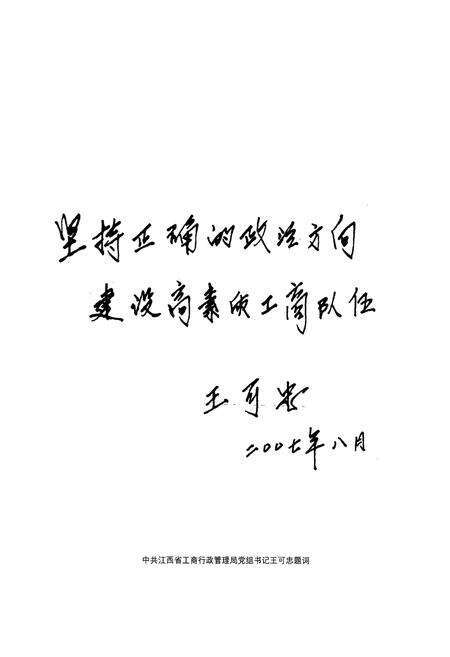 坚持正确的政治方向
建设高素质工商队伍
王可忠
二〇〇七年八月
中共江西省工商行政管理局党组书记王可忠题词